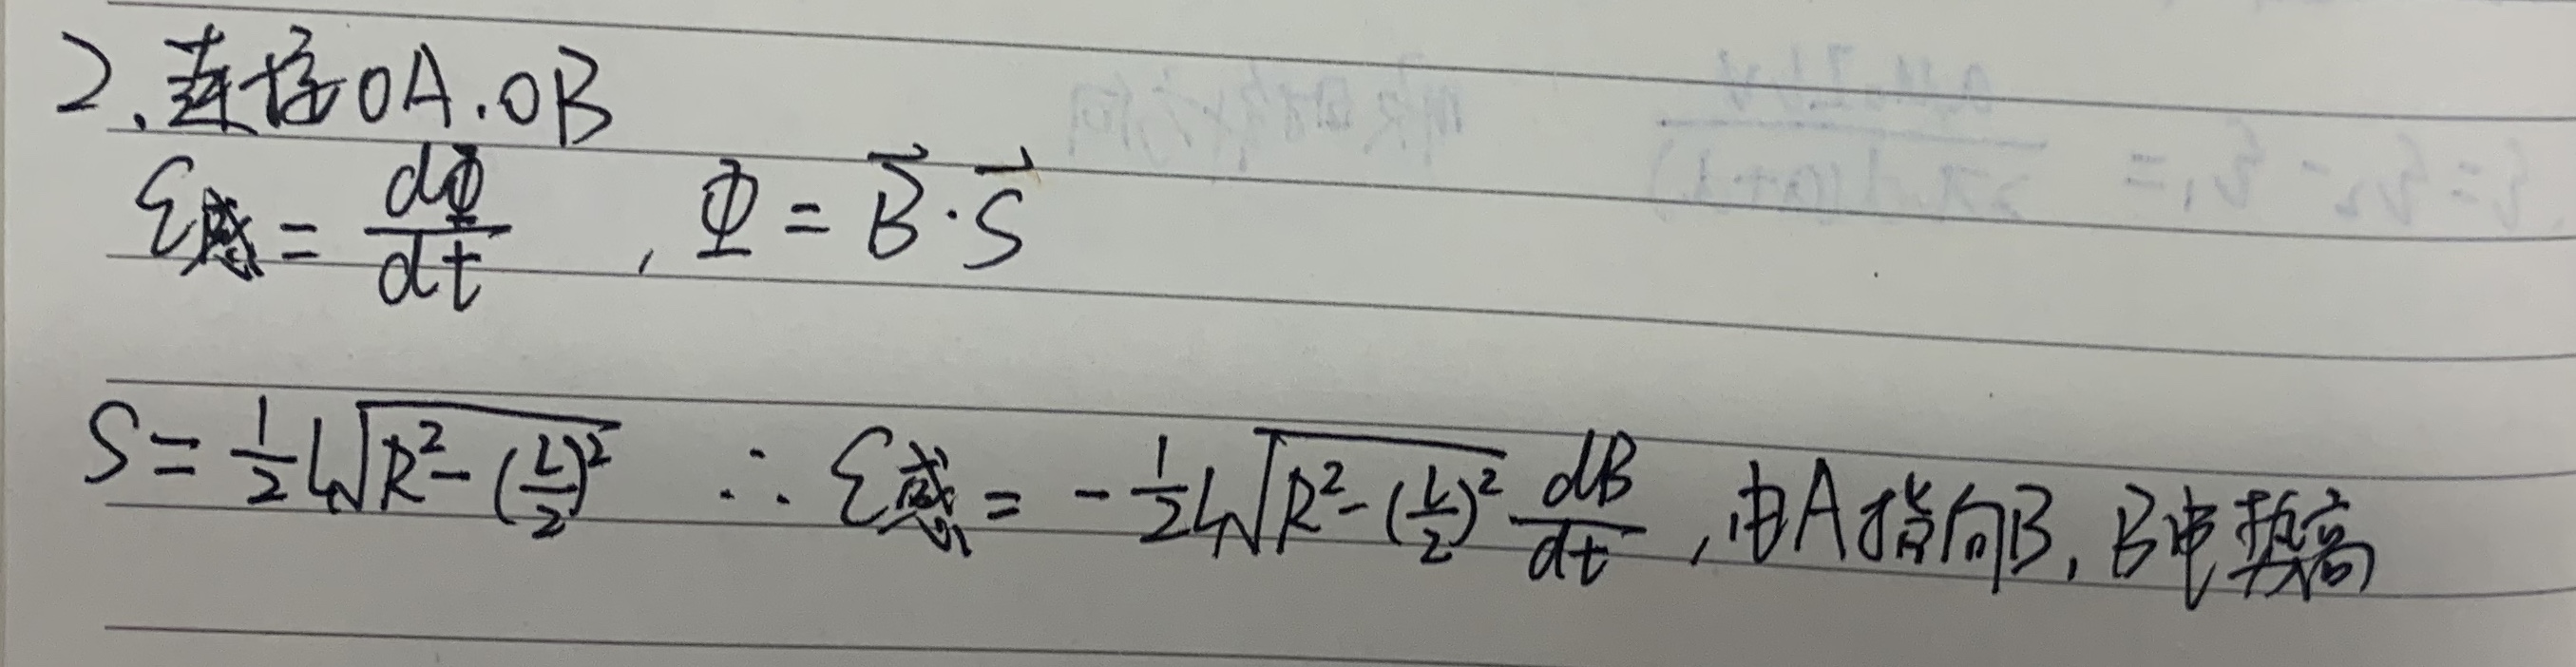 2.连接OA.OB
ε感 = dΦ/dt , Φ = B⃗·S⃗
S = 1/2 L√(R²-(L/2)²) ∴ ε感 = -1/2 L√(R²-(L/2)²) dB/dt ,由A指向B,B电势高